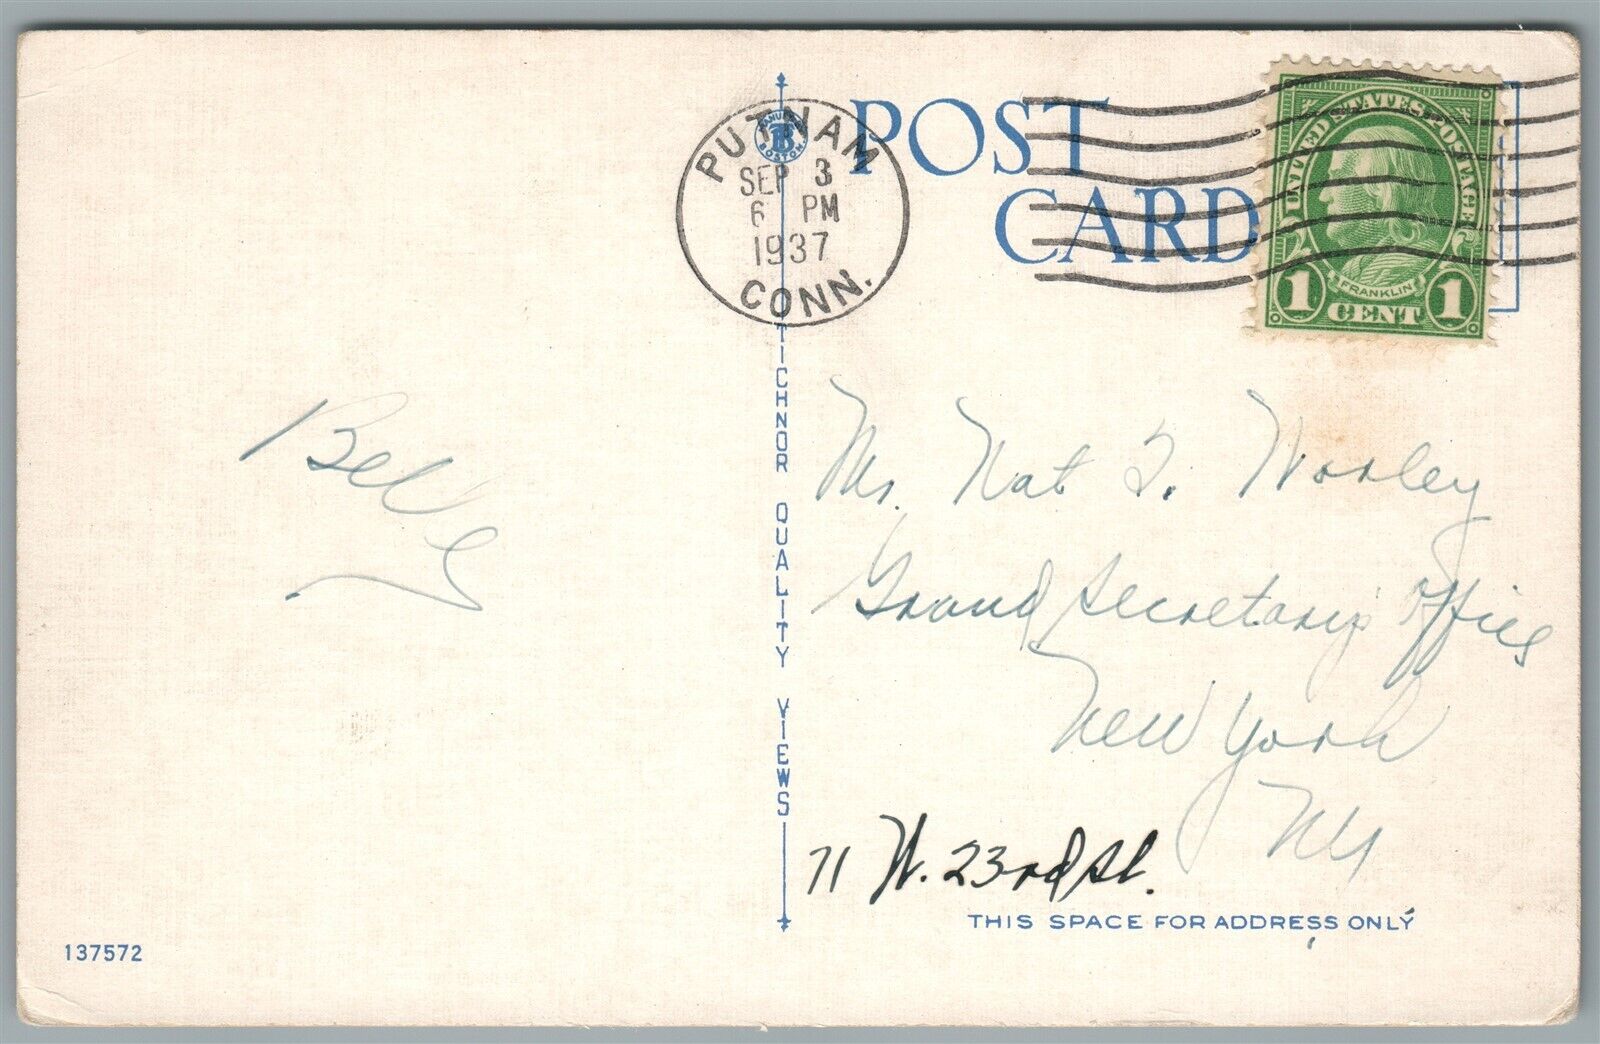 POST
CARD
PUTNAM
SEP 3
6 PM
1937
CONN.
BOSTON
UNITED STATES POSTAGE
FRANKLIN
1 CENT 1
TICHNOR QUALITY VIEWS
Mr. Nat T. Worley
Grand Secretarys Office
New York
NY
71 W. 23rd St.
THIS SPACE FOR ADDRESS ONLY
137572